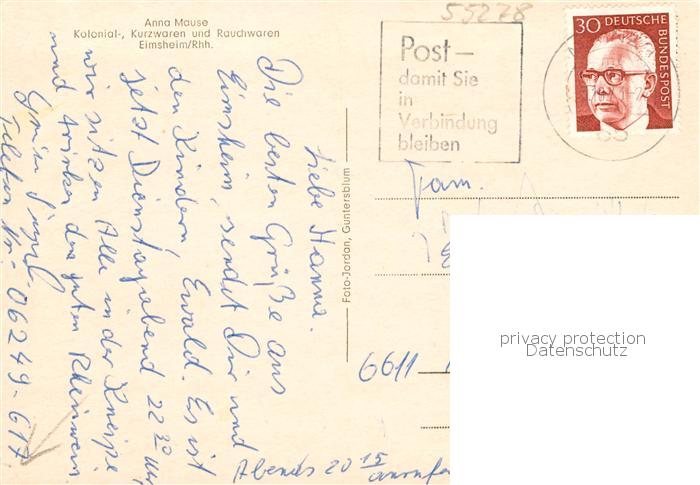 Anna Mause
Kolonial-, Kurzwaren und Rauchwaren
Eimsheim/Rhh.
55278
Post—
damit Sie
in
Verbindung
bleiben
30 DEUTSCHE
BUNDESPOST
Liebe Hanne.
Die besten Grüße aus
Eimsheim, sendet Dir und
den Kindern, Ewald. Es ist
jetzt Dienstagabend 22 30 Uhr,
wir sitzen Alle in der Kneipe
und trinken den guten Rheinwein
Telefon Nr.- 06249-617
Abends 20 15
Foto-Jordan, Guntersblum
Fam.
6611
privacy protection
Datenschutz